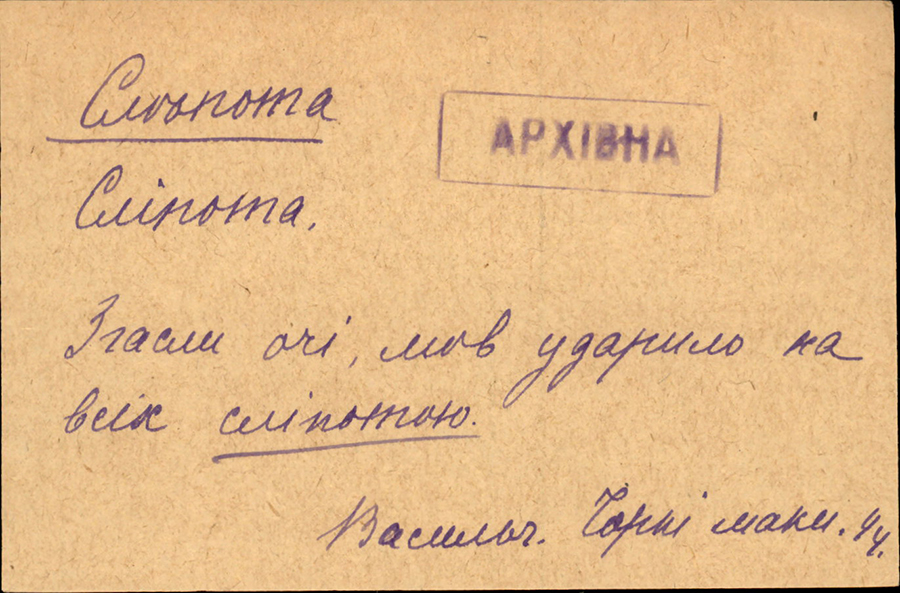 Слѣпота
АРХІВНА
Сліпота.
Згасли очі, мов ударило на
всіх сліпотою.
Васильч. Чорні маки. 44.